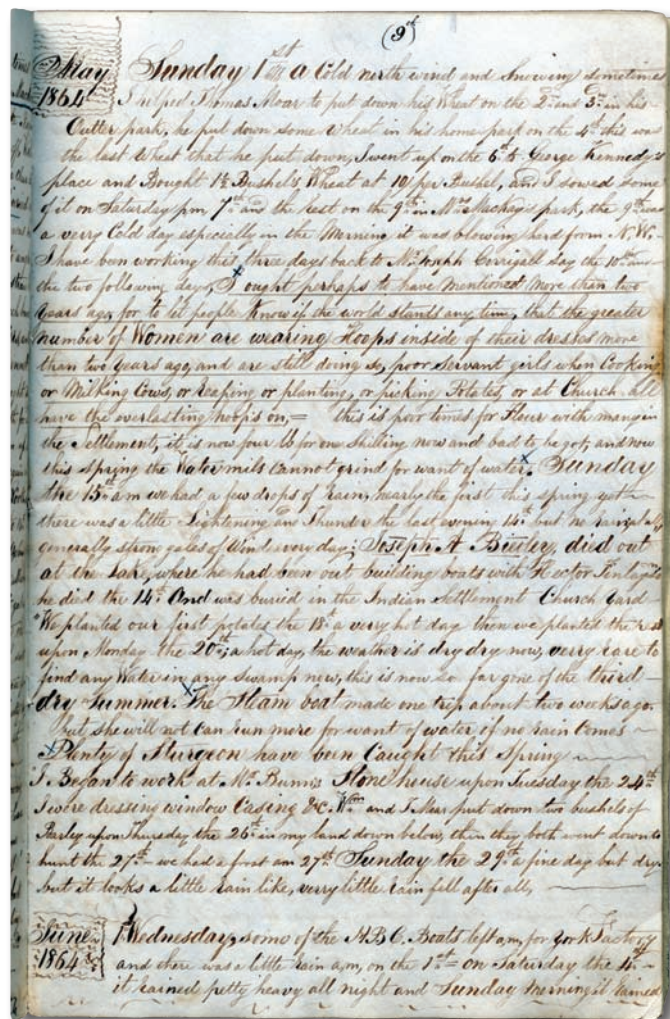 (9th)
May 1864 Sunday 1st a Cold north wind and Snowing sometimes
I helped Thomas Moar to put down his Wheat on the 2nd and 3rd in his
Outter park, he put down some wheat in his home park on the 4th this was
the last wheat that he put down, I went up on the 6th to George Kennedy's
place and Bought 1½ Bushels Wheat at 10/ per Bushel, and I sowed some
of it on Saturday pm, 7th and the rest on the 9th in Mrs Mackay's park, the 9th was
a verry Cold day especially in the Morning it was blowing hard from N.W.
I have been working this three days back to Mr Joseph Corrigall say the 10th and
the two following days, I ought perhaps to have mentioned more than two
Years ago, for to let people Know if the world stands any time, that the greater
number of Women are wearing Hoops inside of their dresses more
than two years ago, and are still doing so, poor servant girls when Cooking
or Milking Cows, or Reaping or planting, or picking Potates, or at Church all
have the everlasting hoops on, = this is poor times for Flour with many in
the Settlement, it is now four lb for one shilling now and bad to be got, and now
this spring the Water mils Cannot grind for want of water. Sunday
the 15th a m we had a few drops of Rain, nearly the first this spring yet
there was a little Lightening an Thunder the last evening 14th but no rain,
generally strong gales of Wind every day; Joseph A Bieuler, died out
at the Lake, where he had been out building boats with Hector
he died the 14th And was buried in the Indian Settlement Church yard
We planted our first potates the 18th a verry hot day then we planted the rest
upon Monday the 20th; a hot day, the weather is dry dry now, verry rare to
find any Water in any swamp now, this is now so far gone of the third
dry Summer. The Steam boat made one trip about two weeks ago.
but she will not Can run more for want of water if no rain Comes
Plenty of Sturgeon have been Caught this Spring
I Began to work at Mr Bunn's Stone house upon Tuesday the 24th
I were dressing window Casing &c. Wm and J Moar put down two bushels of
Barley upon Thursday the 26th in my land down below, then they both went down to
hunt the 27th we had a frost am 27th Sunday the 29th a fine day but dry
but it looks a little rain like, verry little rain fell after all,
June 1864 1st Wednesday, some of the H.B.C. Boats left a,m, for York Factory
and there was a little rain a,m, on the 1st = on Saturday the 4th
it rained petty heavy all night and Sunday Morning it rained